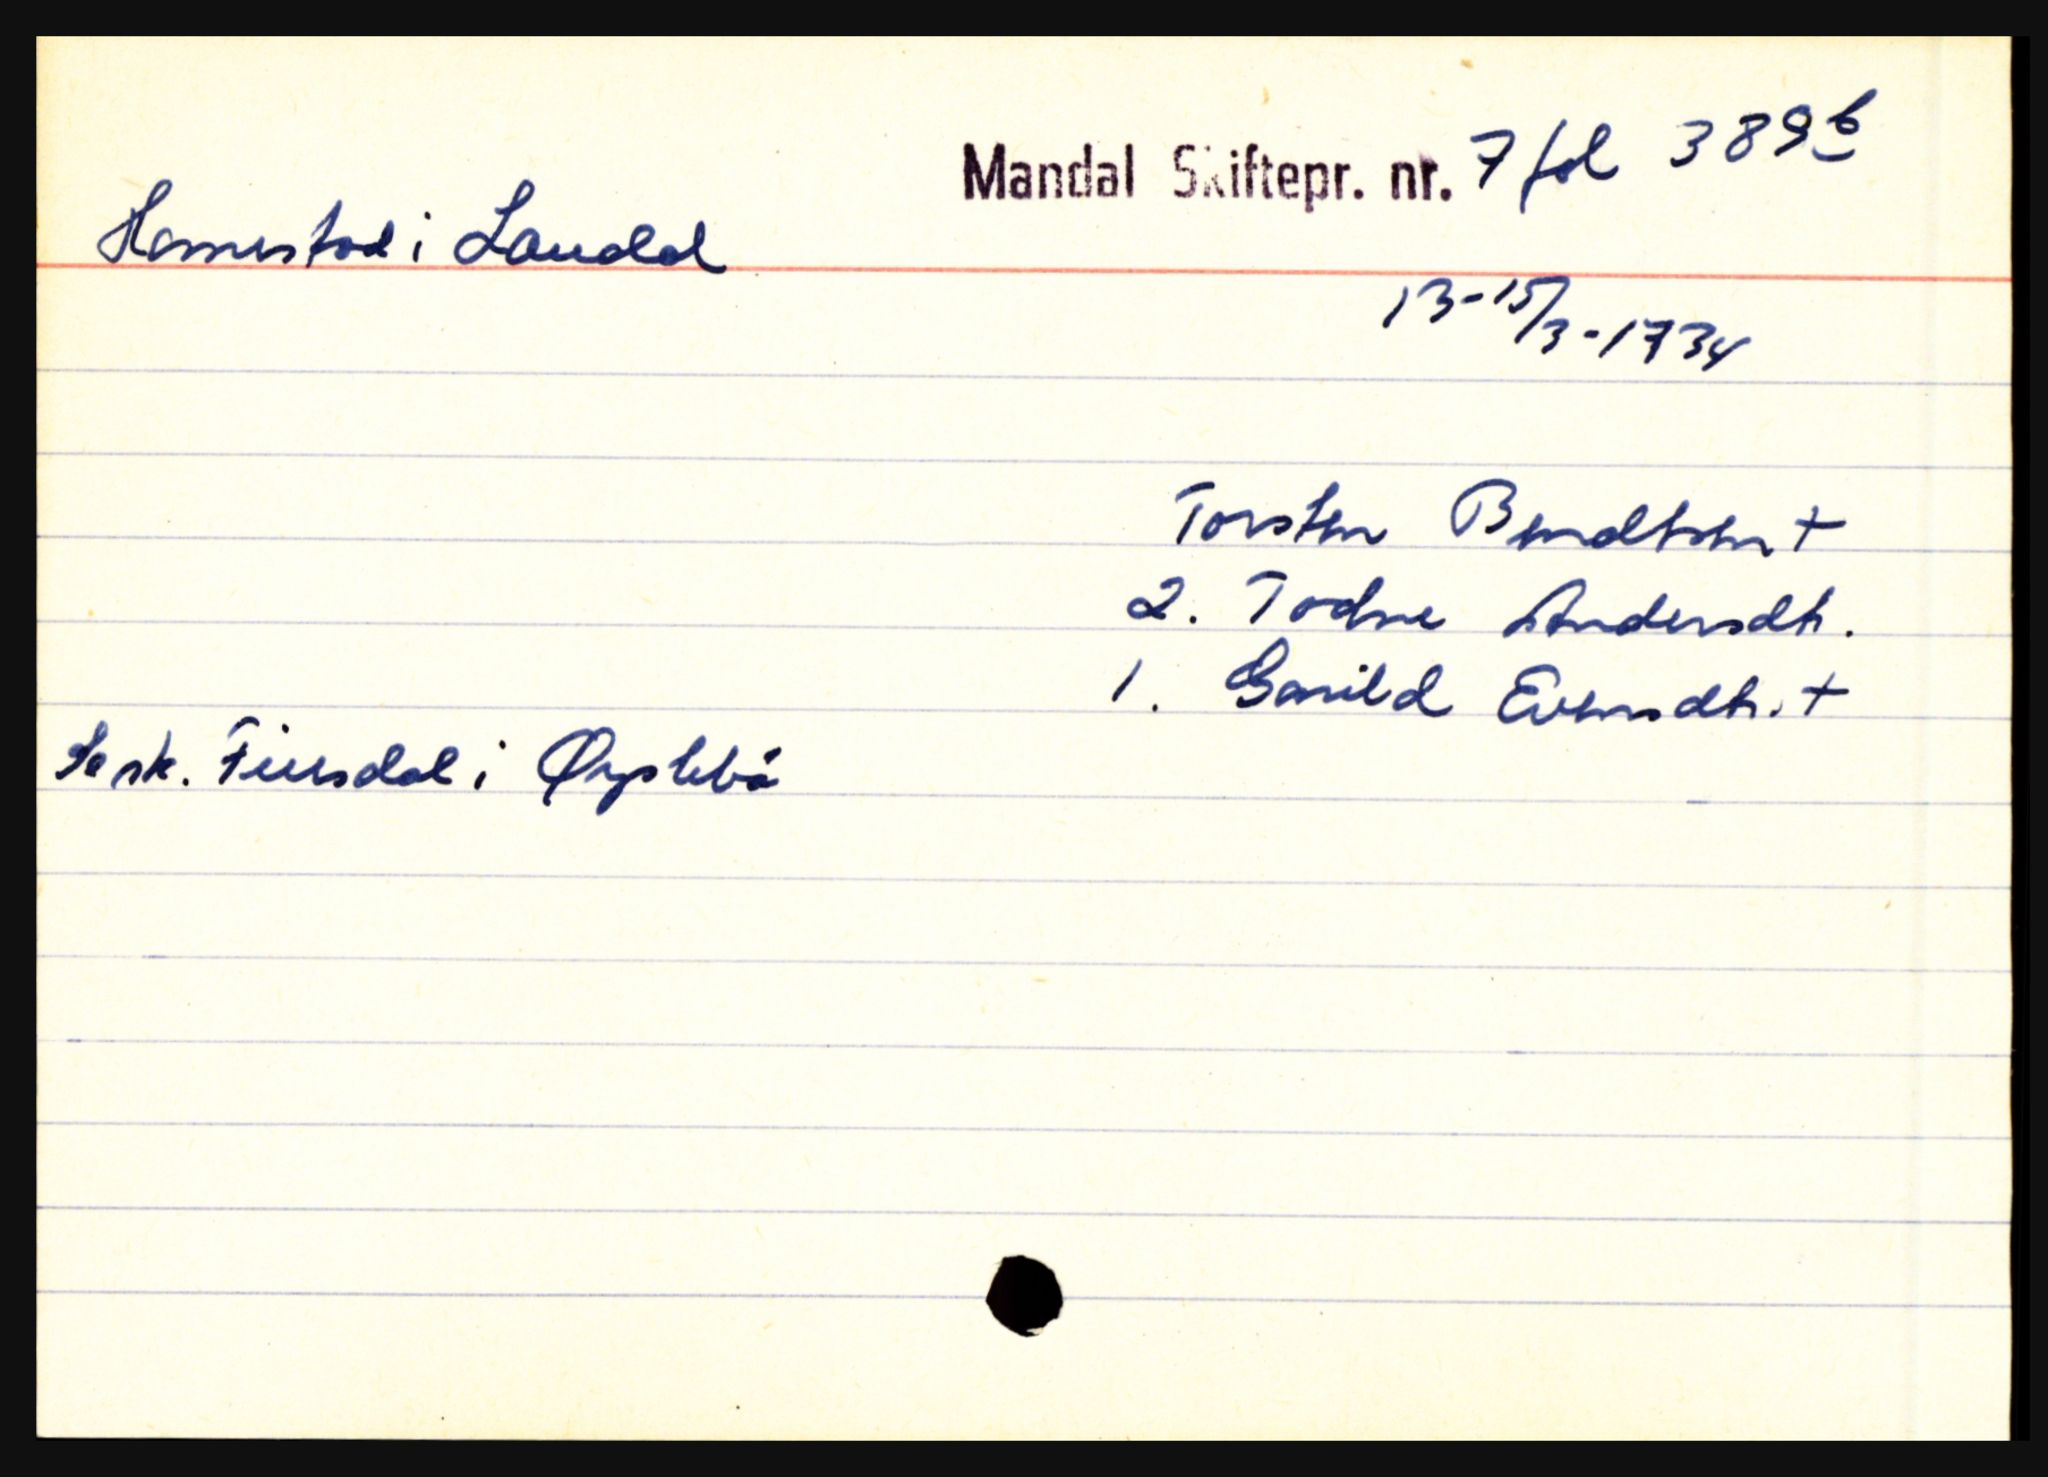 Mandal Skiftepr. nr. 7 fol 389b
Hamestad i Laudal
13-15/3-1734
Torsten Bendtsen +
2. Todne Andersdtr.
1. Gunild Evensdtr. +
Se sk. Fiursdal i Øyslebø